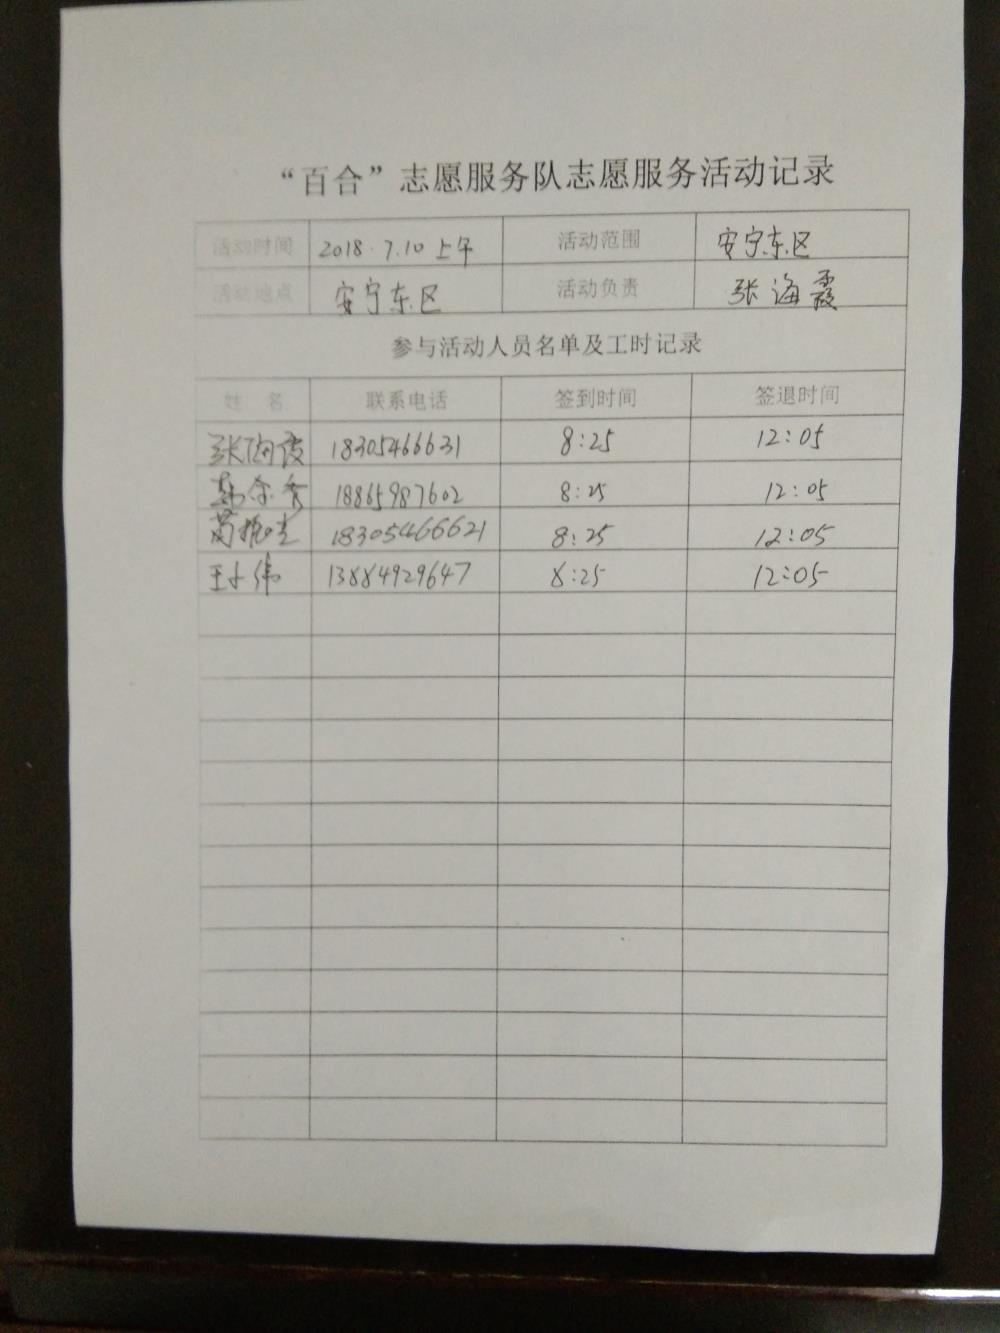 “百合”志愿服务队志愿服务活动记录
活动时间 2018.7.10上午 活动范围 安宁东区
活动地点 安宁东区 活动负责 张海霞
参与活动人员名单及工时记录
姓 名 联系电话 签到时间 签退时间
张海霞 18305466631 8:25 12:05
18865987602 8:25 12:05
18305466621 8:25 12:05
王小伟 13884929647 8:25 12:05